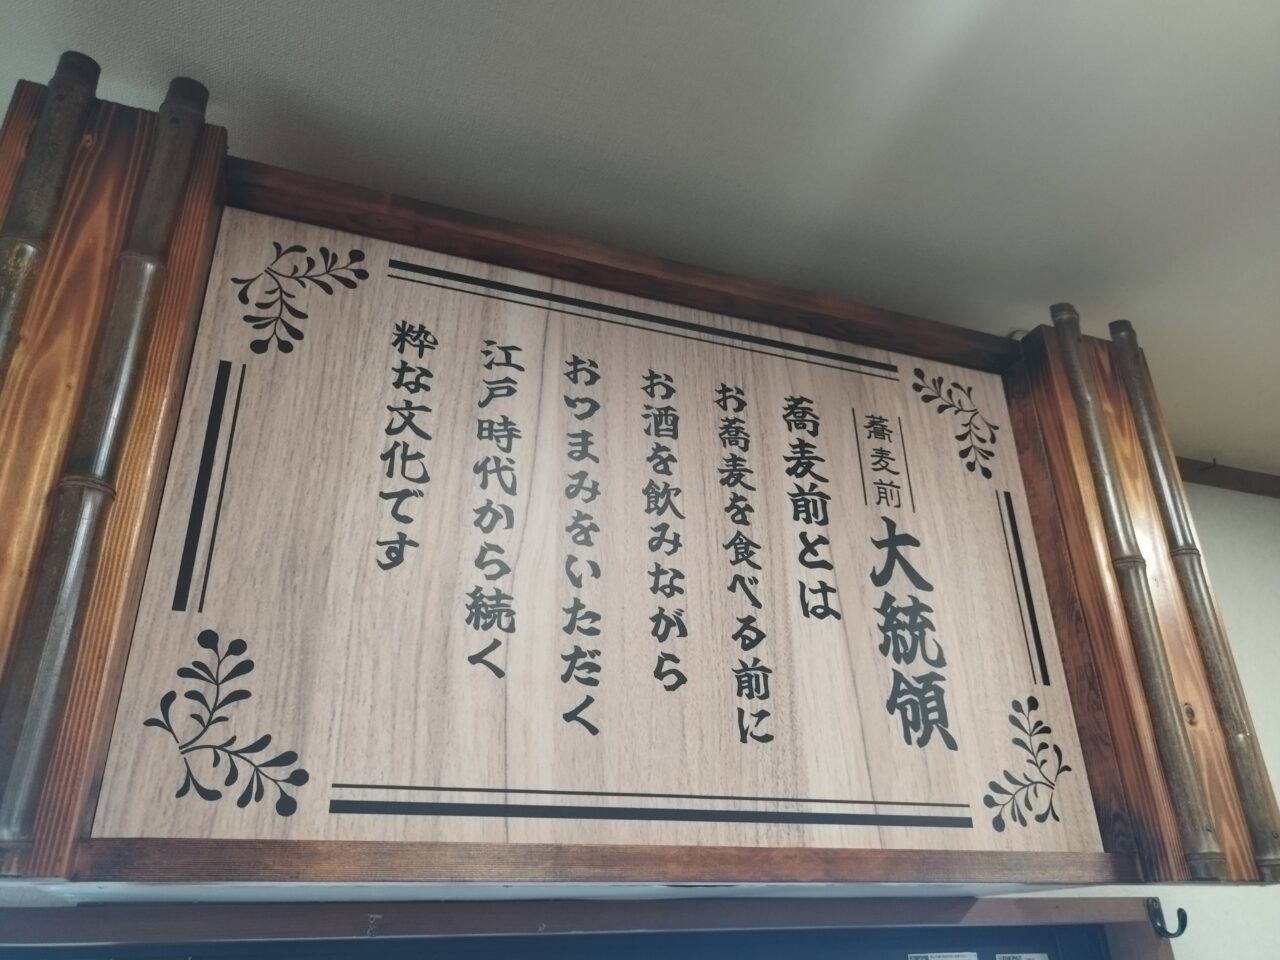 蕎麦前 大統領
蕎麦前とは
お蕎麦を食べる前に
お酒を飲みながら
おつまみをいただく
江戸時代から続く
粋な文化です